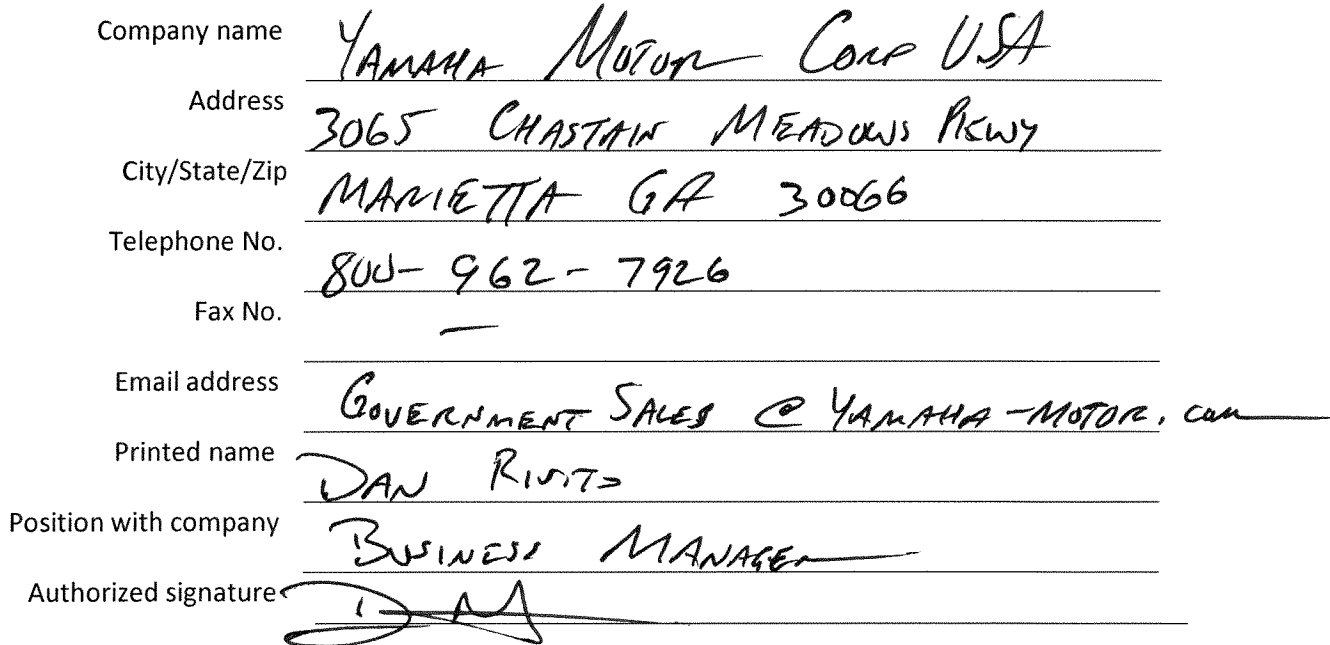 Company name YAMAHA MOTOR CORP USA
Address 3065 CHASTAIN MEADOWS PKWY
City/State/Zip MARIETTA GA 30066
Telephone No. 800-962-7926
Fax No. —
Email address GOVERNMENT SALES @ YAMAHA-MOTOR.com
Printed name DAN
Position with company BUSINESS MANAGER
Authorized signature